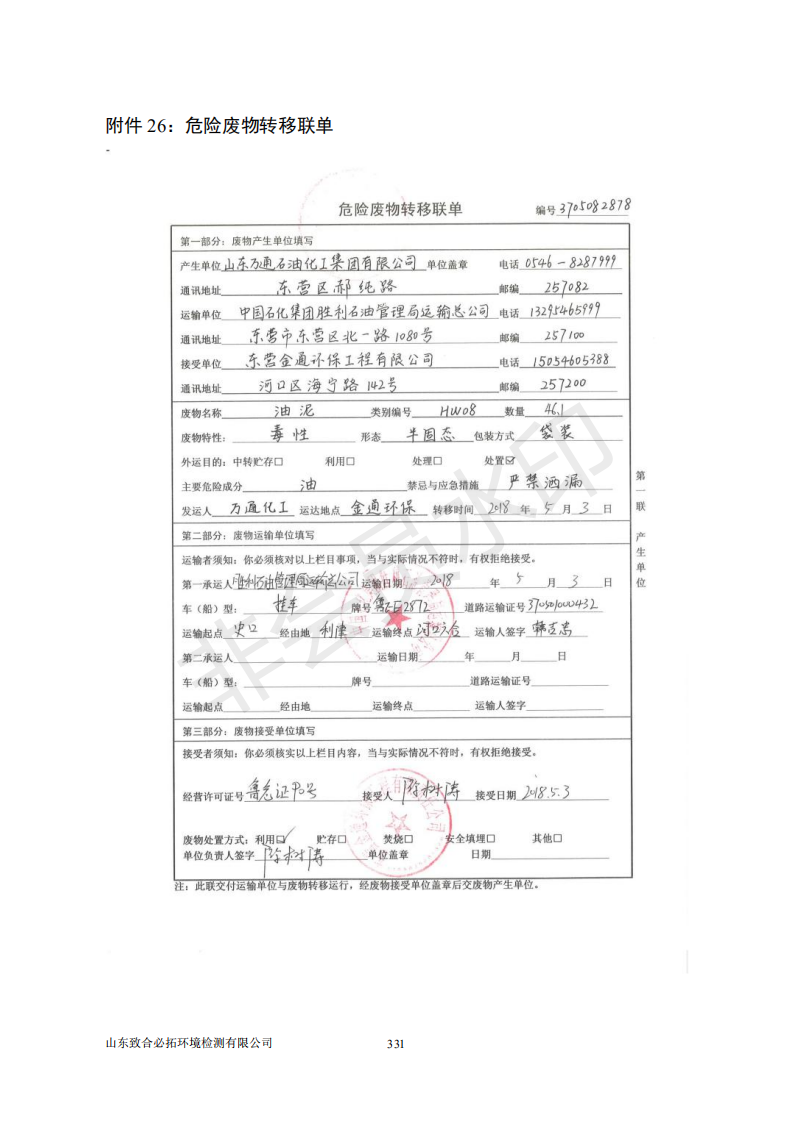 附件 26：危险废物转移联单
危险废物转移联单 编号 3705082878
第一部分：废物产生单位填写
产生单位 山东万通石油化工集团有限公司 单位盖章 电话 0546-8287999
通讯地址 东营区郝纯路 邮编 257082
运输单位 中国石化集团胜利石油管理局运输总公司 电话 13295465999
通讯地址 东营市东营区北一路1080号 邮编 257100
接受单位 东营金通环保工程有限公司 电话 15054605388
通讯地址 河口区海宁路142号 邮编 257200
废物名称 油泥 类别编号 HW08 数量 46.1
废物特性： 毒性 形态 半固态 包装方式 袋装
外运目的：中转贮存☐ 利用☐ 处理☐ 处置☑
主要危险成分 油 禁忌与应急措施 严禁洒漏
发运人 万通化工 运达地点 金通环保 转移时间 2018 年 5 月 3 日
第二部分：废物运输单位填写
运输者须知：你必须核对以上栏目事项，当与实际情况不符时，有权拒绝接受。
第一承运人 胜利石油管理局运输总公司 运输日期 2018 年 5 月 3 日
车（船）型： 挂车 牌号 鲁E2872 道路运输证号 370501000432
运输起点 史口 经由地 利津 运输终点 河口六合 运输人签字
第二承运人 运输日期 年 月 日
车（船）型： 牌号 道路运输证号
运输起点 经由地 运输终点 运输人签字
第三部分：废物接受单位填写
接受者须知：你必须核实以上栏目内容，当与实际情况不符时，有权拒绝接受。
经营许可证号 鲁危证90号 接受人 接受日期 2018.5.3
废物处置方式：利用☑ 贮存☐ 焚烧☐ 安全填埋☐ 其他☐
单位负责人签字 单位盖章 日期
注：此联交付运输单位与废物转移运行，经废物接受单位盖章后交废物产生单位。
第一联 产生单位
非会员水印
山东致合必拓环境检测有限公司 331